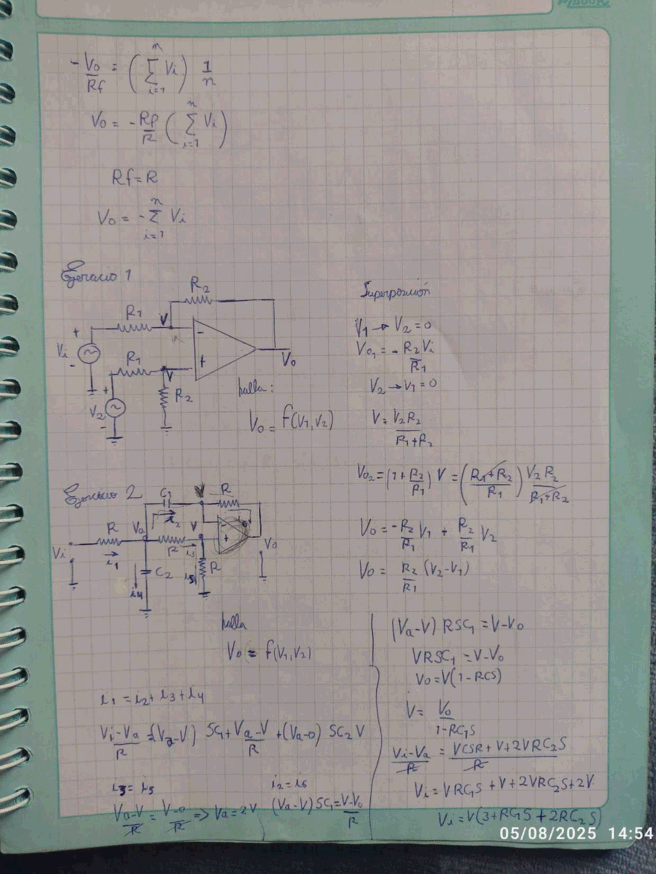 -Vo/Rf = (∑_{i=1}^{n} Vi) 1/n
Vo = -Rf/R (∑_{i=1}^{n} Vi)
Rf = R
Vo = -∑_{i=1}^{n} Vi
Ejercicio 1
R2
R1
V
-
+
Vi
-
Vo
R1
+
V
+
V2
-
R2
halla:
Vo = f(V1,V2)
Superposición
V1 → V2=0
Vo1 = -R2/R1 Vi
V2 → V1=0
V = V2R2/(R1+R2)
Vo2 = (1+R2/R1) V = ((R1+R2)/R1) V2R2/(R1+R2)
Vo = -R2/R1 V1 + R2/R1 V2
Vo = R2/R1 (V2-V1)
Ejercicio 2
C1
V
R
i2
R
Va
V
R
i3
+
Vi
i1
C2
i4
i5
R
Vo
halla
Vo = f(V1,V2)
i1 = i2+i3+i4
(Vi-Va)/R = (Va-V) SC1 + (Va-V)/R + (Va-0) SC2 V
i3 = i5
i2 = i6
(Va-V)/R = (V-0)/R => Va=2V
(Va-V) SC1 = (V-Vo)/R
(Va-V) RSC1 = V-Vo
VRSC1 = V-Vo
Vo = V(1-RCS)
V = Vo/(1-RC1S)
(Vi-Va)/R = (VCSR + V + 2VRC2S)/R
Vi = VRC1S + V + 2VRC2S + 2V
Vi = V(3+RC1S + 2RC2S)
05/08/2025 14:54